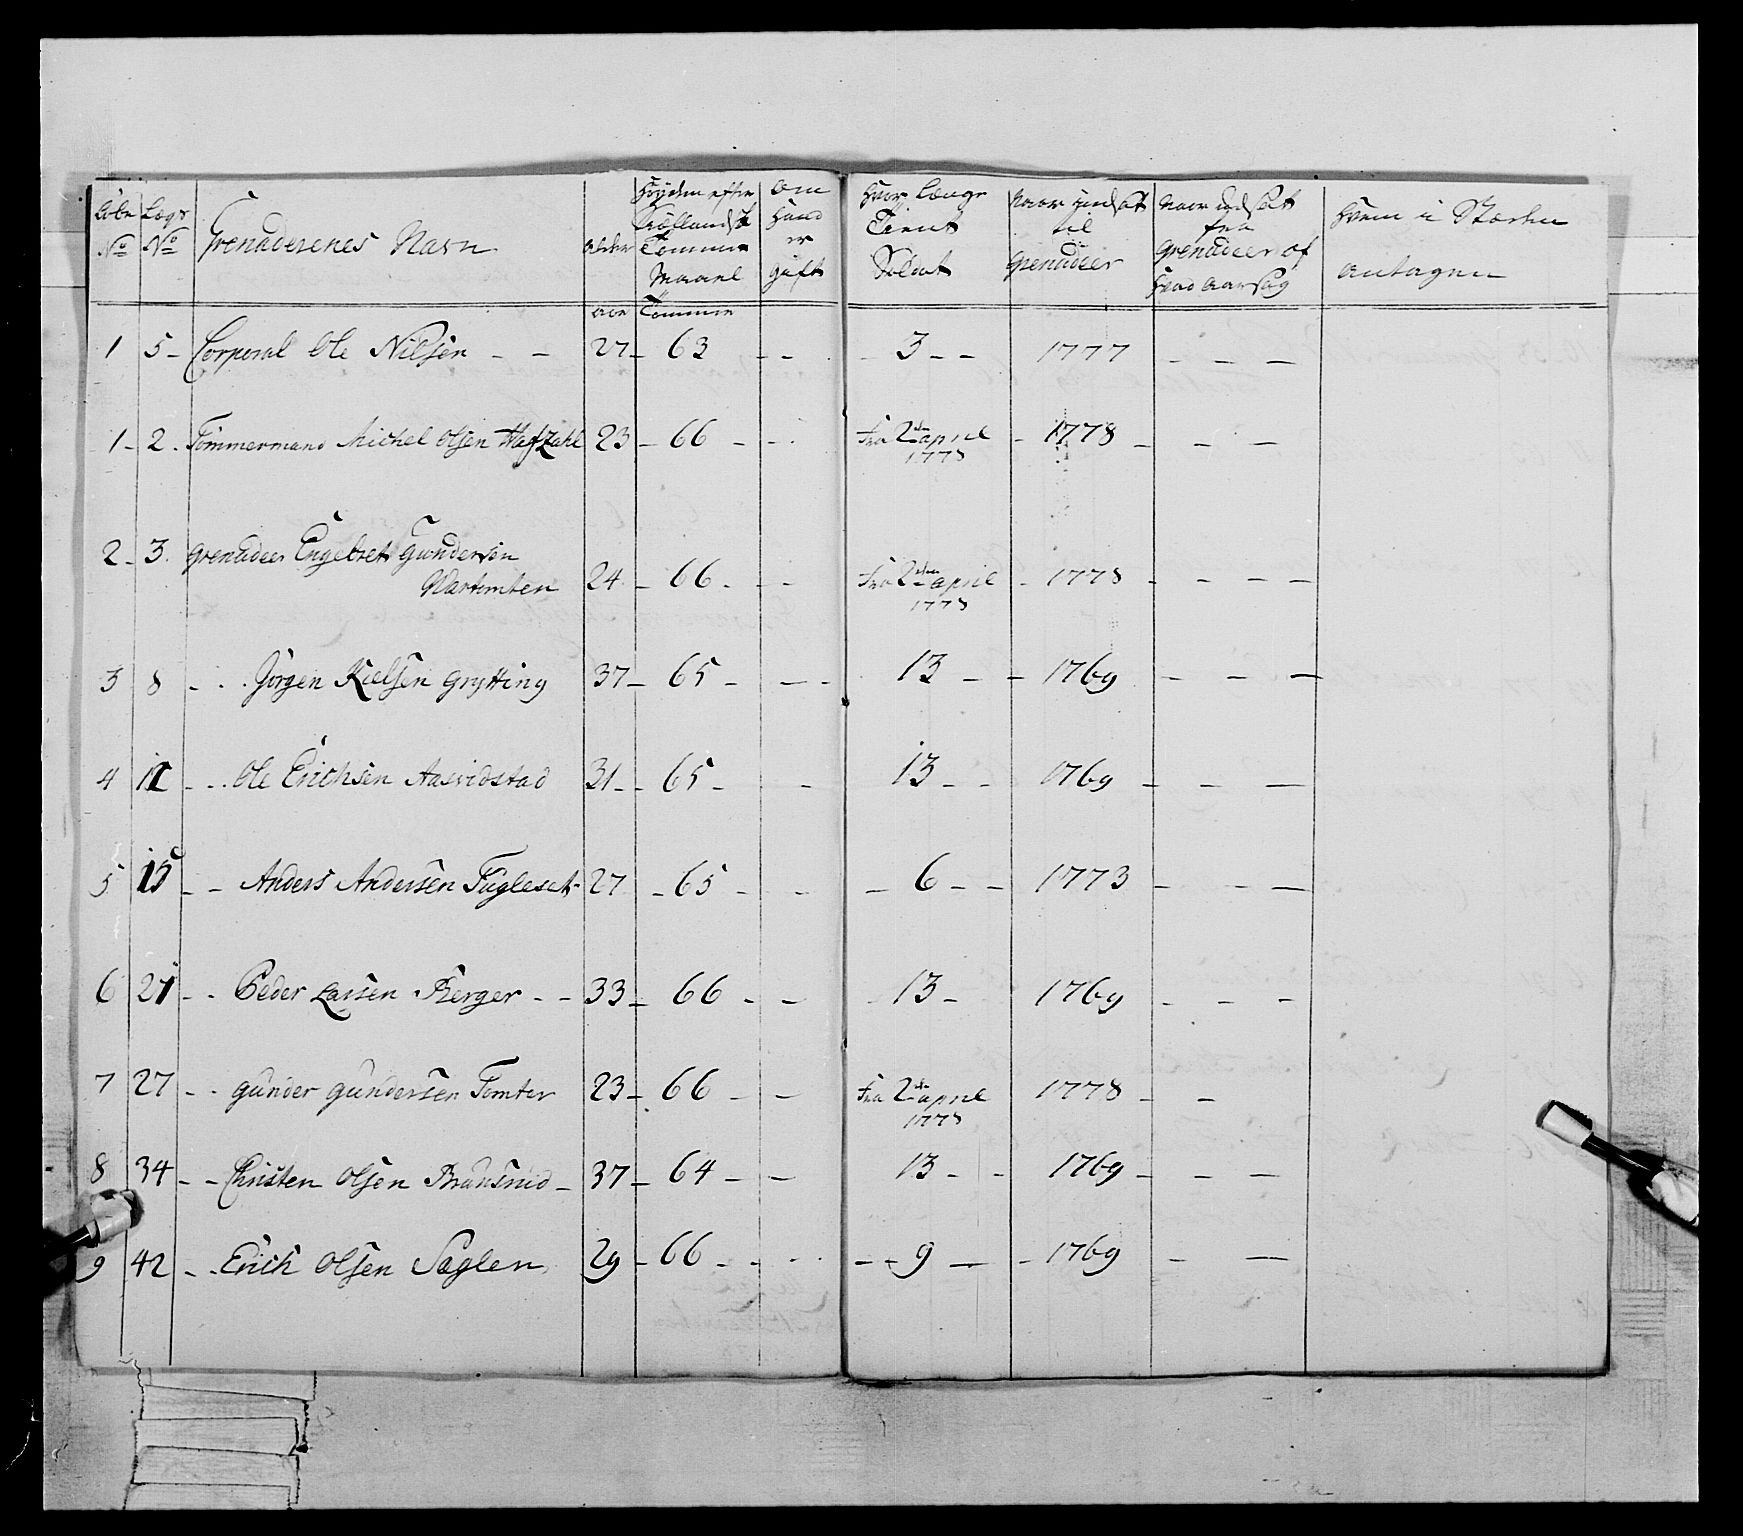 Löbe No | Lægs No | Grenaderenes Navn | Alder | Höyden efter Siællandsk Tomme Maael | Om Hand er gift | Hvor længe Tient Soldat | Naar Indsat til Grenadeer | Naar udsat fra Grenadeer of Hvad Aarsag | Hvem i Stæden antagen
Aar | Tomme
1 | 5 - | Corporal Ole Nilsen - - | 27 - | 63 | - - | 3 - - | 1777 | - - -
1 - | 2 . | Tömmermand Michel Olsen Hafzahl | 23 | - 66 - | - | Fra 2den april 1778 | - 1778 - | - -
2 - | 3 . | Grenadeer Engebret Gundersen Wartomten | 24 | - 66 - | - | Fra 2den april 1778 | - 1778 - | - - -
3 | 8 | - - Jörgen Kielsen Grytting | 37 - | 65 - | - - | 13 - | - 1769 | - - -
4 | 12 | - - Ole Erichsen Aasvidstad | 31 - | - 65 - | - | 13 - - | 1769 - | - -
5 | 15 | - - Anders Andersen Fugleset - | 27 | - 65 - | - | - 6 - - | 1773 | - - -
6 | 21 | - - Peder Larsen Berger - - | 33 - | 66 - | - | 13 - | 1769 | - - -
7 | 27 | - - Gunder Gundersen Tomter | 23 - | 66 - | - | Fra 2den april 1778 | 1778 - | - -
8 | 34 | - - Christen Olsen - | 37 - | 64 - | - | 13 - - | 1769 - | - -
9 | 42 | - - Erich Olsen Saglen | 29 | - 66 - | - | - - 9 - | - 1769 | - -